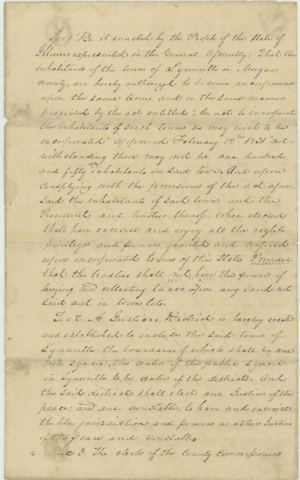 Sec 1 Be it enacted by the People of the State of
Illinois represented in the General Assembly, That the
inhabitants of the town of Lynnville in Morgan
county, are hereby authorized to become incorporated
upon the same terms and in the same manner
prescribed by the act entitled "An act to incorporate
the inhabitants of such towns as may wish to be
incorporated" approved February 12th 1831 not
withstanding there may not be one hundred
and fifty inhabitants in said town. And upon
complying with the provisions of the act afore
said the inhabitants of said town and the
President and trustees thereof when elected
shall have exercise and enjoy all the rights
privileges and powers granted and
upon incorporated towns of this State Provided
that the trustees shall not have the power of
levying and collecting taxes upon any land not
laid out in town lots.
Sec 2. A Justices District is hereby created
and established to include the said town of
Lynnville, the boundaries of which shall be one
mile square, the center of the public square
in Lynnville to be center of the district. And
the said district shall elect one Justice of the
peace and one constable to have and exercise
the like jurisdiction and powers as other Justices
of the peace and constables
Sec 3. The clerk of the County Commissioners